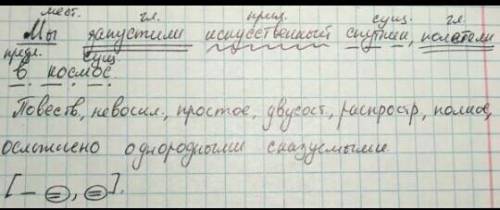 мест. гл. прил. сущ. гл.
Мы запустили искусственный спутник, полетели
предл. сущ
в космос.
Повеств., невоскл., простое, двусост., распростр., полное,
осложнено однородными сказуемыми.
[– =, =].